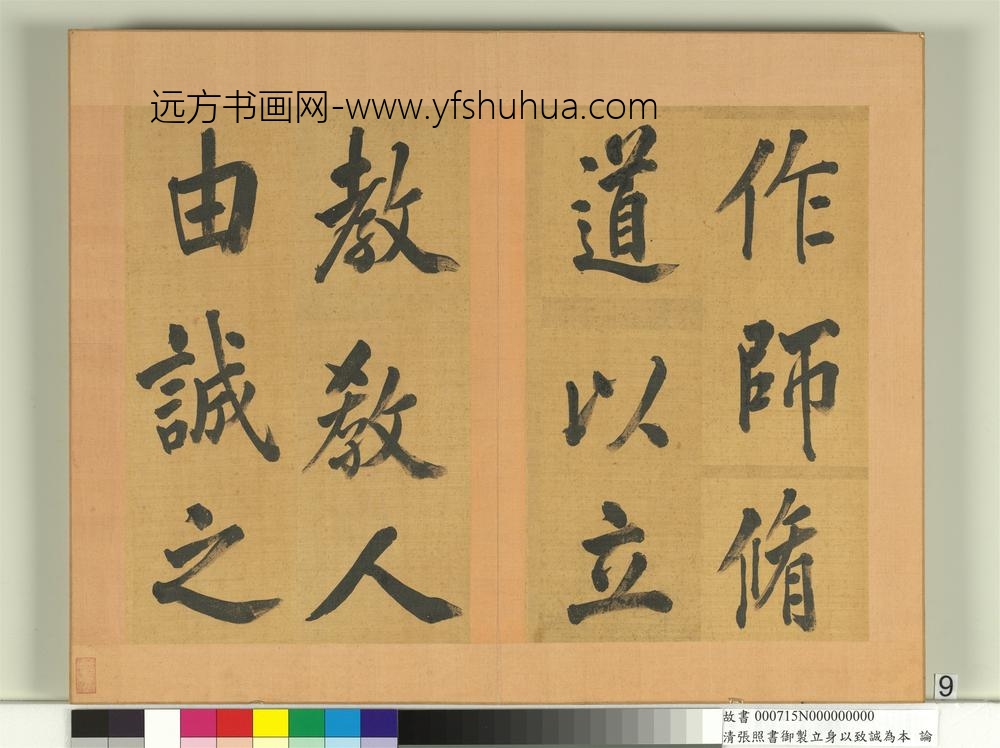 远方书画网-www.yfshuhua.com
作師脩
道以立
教教人
由誠之
9
故書 000715N000000000
清張照書御製立身以致誠為本 論